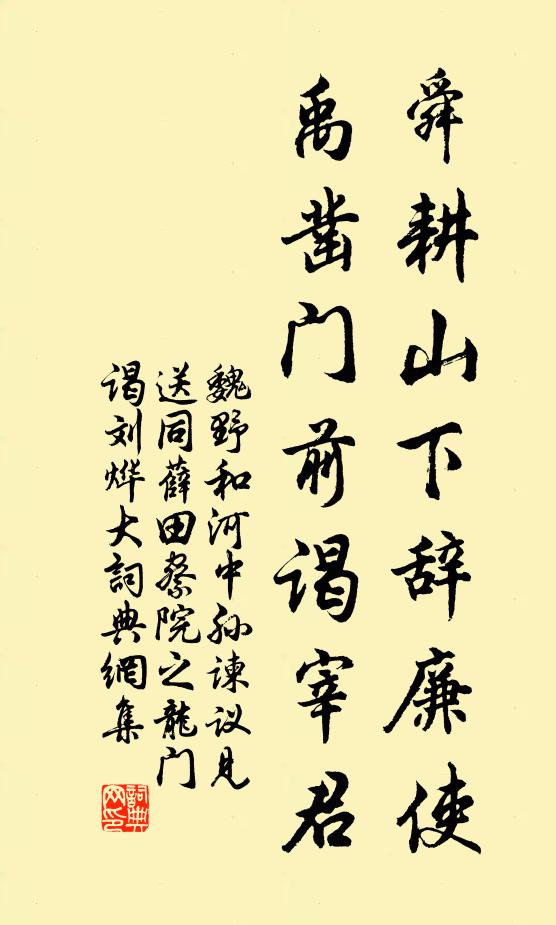 舜耕山下辞廉使
禹凿门前谒宰君
魏野和河中孙諫议见
送同薛田察院之龍门
谒刘烨大詞典網集
詞典网印